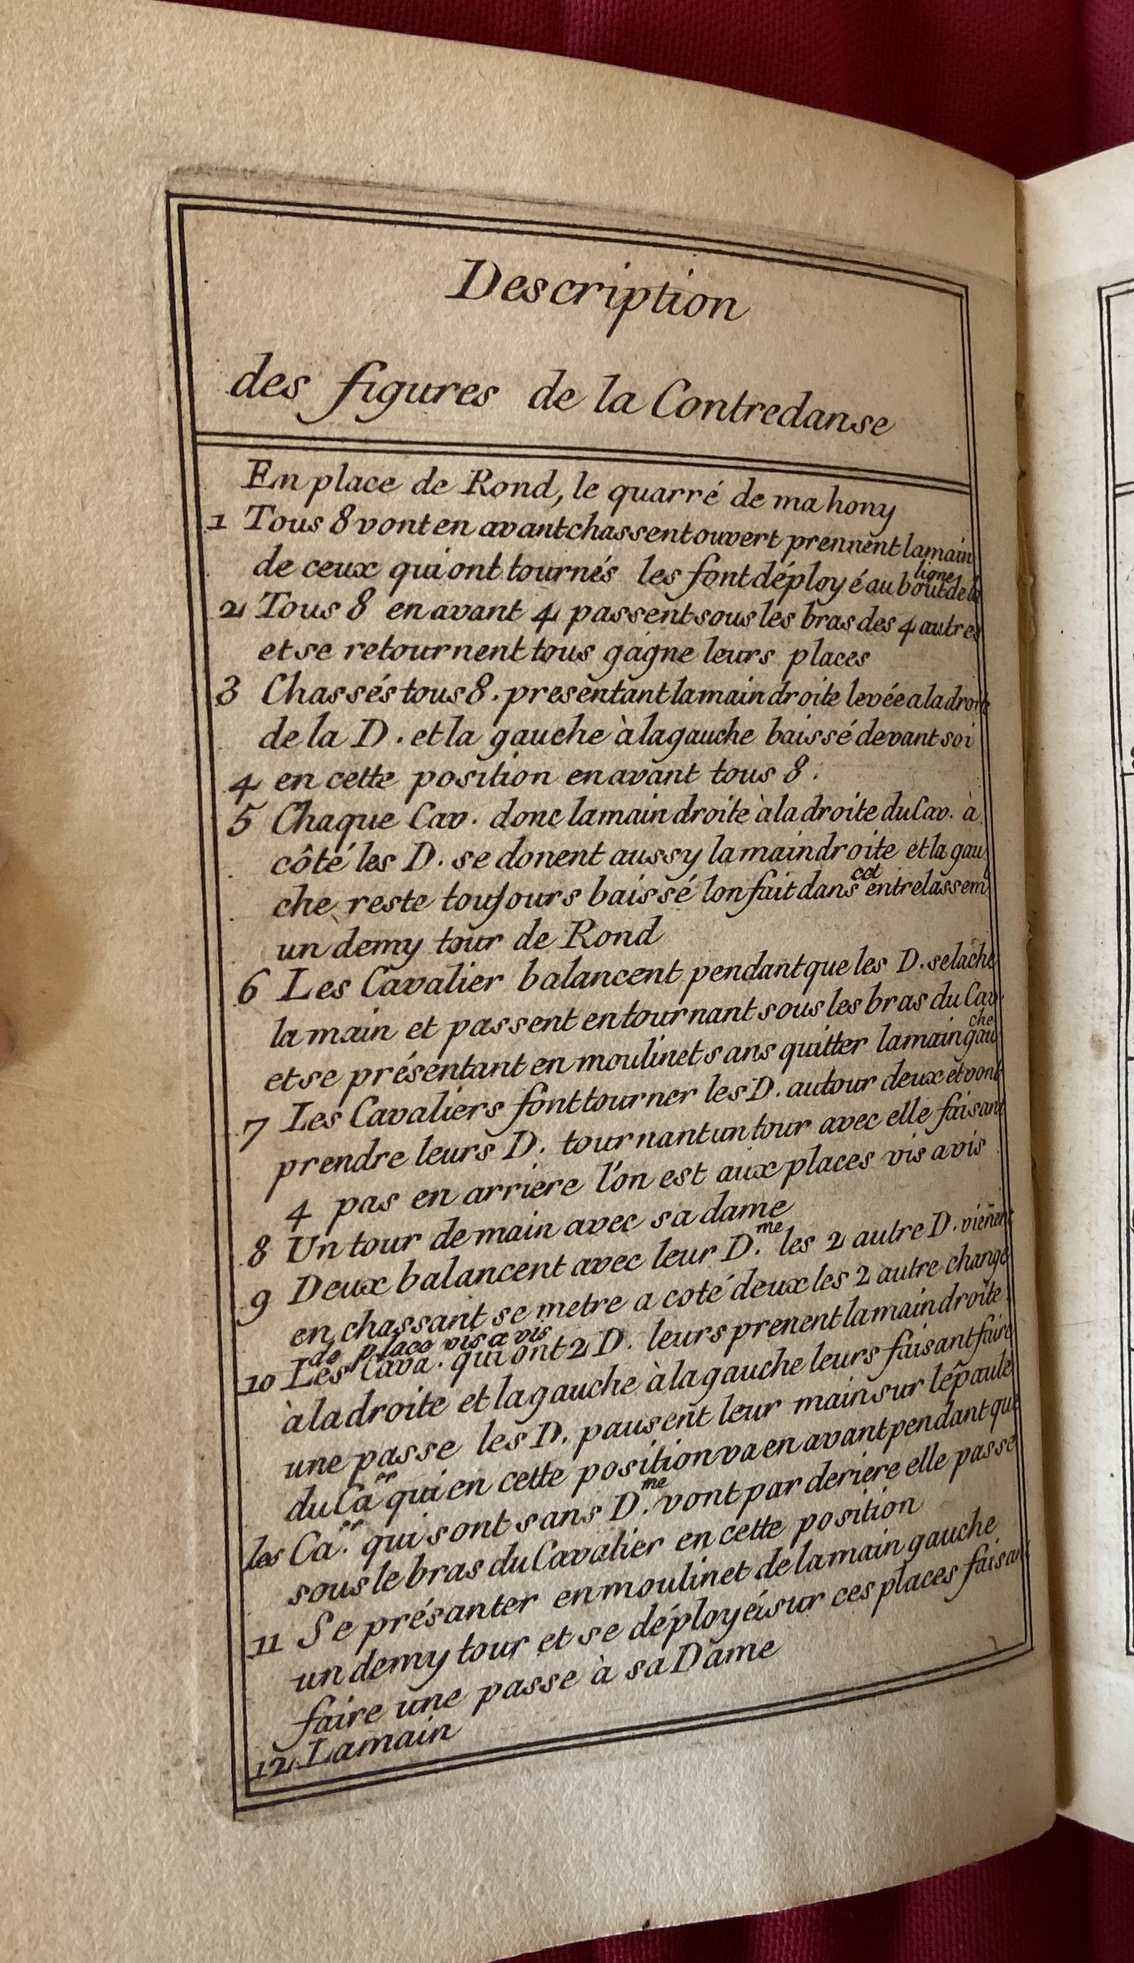 Description
des figures de la Contredanse
En place de Rond, le quarré de mahony
1 Tous 8 vont en avant chassent ouvert prennent la main
de ceux qui ont tournés les font déployé au bout de la
ligne
2 Tous 8 en avant 4 passent sous les bras des 4 autres
et se retournent tous gagne leurs places
3 Chassés tous 8. presentant la main droite levée a la droite
de la D. et la gauche à la gauche baissé devant soi
4 en cette position en avant tous 8.
5 Chaque Cav. donc la main droite à la droite du Cav. à
côté les D. se donent aussy la main droite et la gau
che reste toujours baissé lon fait dans cet entrelassem
un demy tour de Rond
6 Les Cavalier balancent pendant que les D. se lache
la main et passent en tournant sous les bras du Cav.
et se présentant en moulinet sans quitter la main gau
che
7 Les Cavaliers font tourner les D. autour deux et vont
prendre leurs D. tournant un tour avec elle faisant
4 pas en arriere l'on est aux places vis a vis
8 Un tour de main avec sa dame
9 Deux balancent avec leur D.me les 2 autre D. vienent
en chassant se metre a coté deux les 2 autre change
de place vis a vis
10 Les Cava. qui ont 2 D. leurs prenent la main droite
à la droite et la gauche à la gauche leurs faisant faire
une passe les D. pausent leur main sur lépaule
du Ca.er qui en cette position va en avant pendant que
les Ca.er qui sont sans D.me vont par deriere elle passe
sous le bras du Cavalier en cette position
11 Se présanter en moulinet de la main gauche
un demy tour et se déployé sur ces places faisant
faire une passe à sa Dame
12 La main